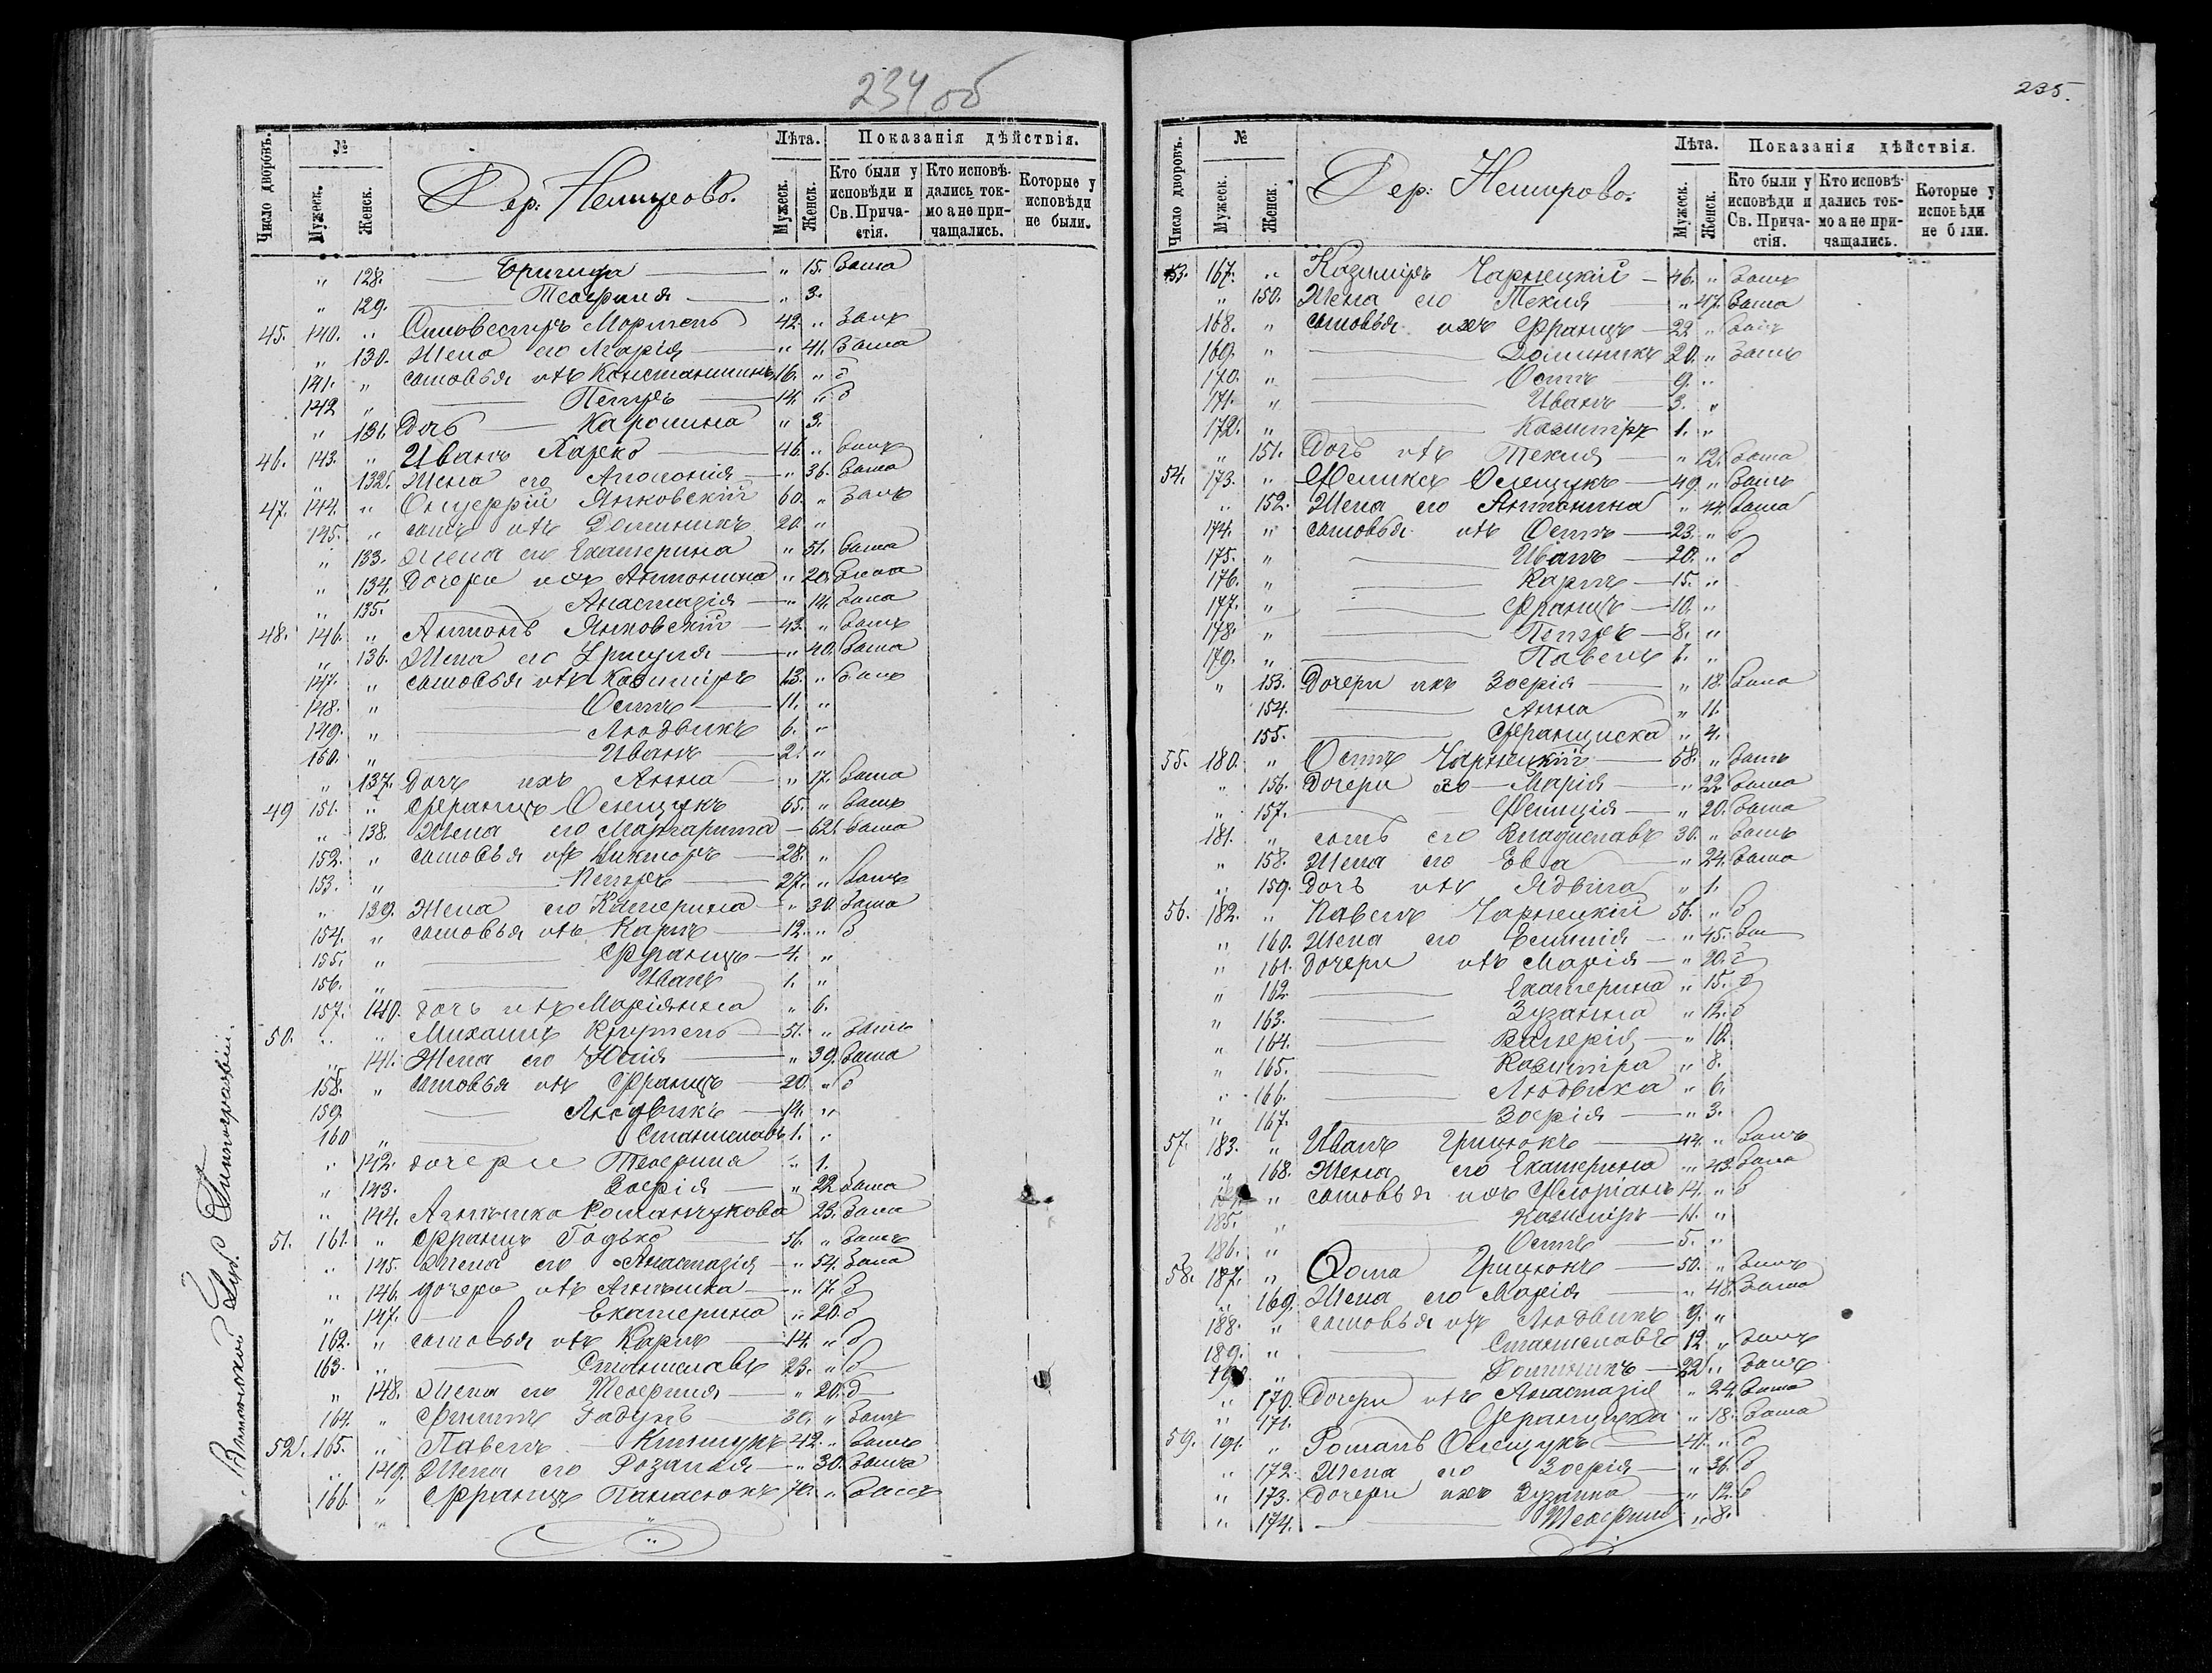 234 об
Число дворовъ. № Мужеск. Женск. Дер: Немирово. Лѣта. Мужеск. Женск. Показанія дѣйствія. Кто были у исповѣди и Св. Причастія. Кто исповѣдались токмо а не причащались. Которые у исповѣди не были.
„ 128. — „ 15. Была
„ 129. — Теофиля — „ 3.
45. 140. „ Сильвестръ 42. „ Былъ
„ 130. Жена его Марія — „ 41. Была
141. „ сыновья ихъ Константинъ 16. „ б
142 „ — Петръ — 14. „ б
„ 131. Дочь — Каролина „ 3.
46. 143. „ Иванъ — 46. „ Былъ
„ 132. Жена его Аполонія — „ 36. Была
47. 144. „ Онуфрій Янковскій 60. „ Былъ
145. „ сынъ ихъ Доминикъ 20. „
„ 133. Жена его Екатерина „ 51. Была
„ 134. Дочери ихъ Антонина „ 20. Была
„ 135. — Анастазія — „ 14. Была
48. 146. „ Антонъ Янковскій — 43. „ Былъ
„ 136. Жена его — „ 40. Была
147. „ сыновья ихъ Казиміръ 13. „ Былъ
148. „ — Осипъ — 11. „
149. „ — Людвикъ 6. „
150. „ — Иванъ — 2. „
„ 137. Дочь ихъ Анна — „ 17. Была
49 151. „ Францъ Олещукъ 65. „ Былъ
„ 138. Жена его Маргарита — 62. Была
152. „ сыновья ихъ Викторъ — 28. „
153. „ — Петръ — 27. „ Былъ
„ 139. Жена его Катерина — „ 30. Была
154. „ сыновья ихъ Карпъ — 12. „ б
155. „ — Францъ — 4. „
156. „ — Иванъ 1. „
157. 140. дочь ихъ Маріянна „ 6.
50. „ „ Михаилъ — 51. „ Былъ
„ 141. Жена его Юлія — „ 39. Была
158. „ сыновья ихъ Францъ — 20. „ б
159. — Людвикъ — 14. „
160 „ — Станиславъ 1. „
„ 142. дочери Теофила „ 1.
„ 143. Зофія — „ 22 Была
„ 144. Агнѣшка Романчукова 23. Была
51. 161. „ Францъ Годько 56. „ Былъ
„ 145. Жена его Анастазія — „ 54. Была
„ 146. дочери ихъ Агнѣшка — „ 17. б
„ 147. — Екатерина „ 20. б
162. „ сыновья ихъ Карпъ — 14. „ б
163. „ — Станиславъ 23. „ б
„ 148. Жена его Теофиля — „ 20. б
164. „ 30. „ Былъ
52. 165. „ Павелъ — 42. „ Былъ
„ 149. Жена его Розалія — „ 30. Была
166. „ Францъ Панасюкъ 70. „ Былъ
Виленской Губ. Типографіи.
235.
Число дворовъ. № Мужеск. Женск. Дер: Немирово. Лѣта. Мужеск. Женск. Показанія дѣйствія. Кто были у исповѣди и Св. Причастія. Кто исповѣдались токмо а не причащались. Которые у исповѣди не были.
53. 167. „ Казиміръ Чарнецкій — 46. „ Былъ
„ 150. Жена его Текля — „ 47. Была
168. „ сыновья ихъ Францъ — 22 „ Былъ
169. „ — Доминикъ 20. „ Былъ
170. „ — Осипъ — 9. „
171. „ — Иванъ — 3. „
172. „ — Казиміръ 1. „
„ 151. Дочь ихъ Текля — „ 12. Была
54. 173. „ Феликсъ Олещукъ — 49. „ Былъ
„ 152. Жена его Антонина „ 44. Была
174. „ сыновья ихъ Осипъ — 23. „ б
175. „ — Иванъ — 20. „ б
176. „ — Карпъ — 15. „
177. „ — Францъ — 10. „
178. „ — Петръ — 8. „
179. „ — Павелъ „
„ 153. Дочери ихъ Зофія — „ 18. Была
154. — Анна „ 11.
155. — Франциска „ 4.
55. 180. „ Осипъ Чарнецкій — 58. „ Былъ
„ 156. Дочери его — Марія — „ 22 Была
„ 157. — Фелиція — „ 20. Была
181. „ сынъ его Владиславъ 30. „ Былъ
„ 158. Жена его Ева „ 24. Была
„ 159. Дочь ихъ Ядвига „ 1.
56. 182. „ Павелъ Чарнецкій 56. „ б
„ 160. Жена его Емилія — „ 45. Была
„ 161. Дочери ихъ Марія — „ 20. б
„ 162 — Екатерина „ 15. б
„ 163. — Зузанна „ 12. б
„ 164. — Валерія — „ 10.
„ 165. — Казиміра „ 8.
„ 166. — Людвика „ 6.
„ 167. — Зофія — „ 3.
57. 183. „ Иванъ Грицюкъ — 44. „ Былъ
„ 168. Жена его Екатерина „ 43. Была
„ сыновья ихъ Флоріанъ 14. „ б
185. „ Казиміръ — 11. „
186. „ — Осипъ — 5. „
58. 187. „ Фома Грицюкъ — 50. „ Былъ
„ 169. Жена его Марія — „ 48. Была
188. „ сыновья ихъ Людвикъ 9. „
189. „ — Станиславъ 12 „ Былъ
190. „ — Доминикъ — 22 „ Былъ
„ 170. Дочери ихъ Анастазія „ 24. Была
„ 171. Франциска „ 18. Была
59. 191. „ Романъ Олещукъ — 41. „ б
„ 172. Жена его Зофія — „ 36. б
„ 173. Дочери ихъ Зузанна — „ 12. б
„ 174. — Теофиля „ 8.